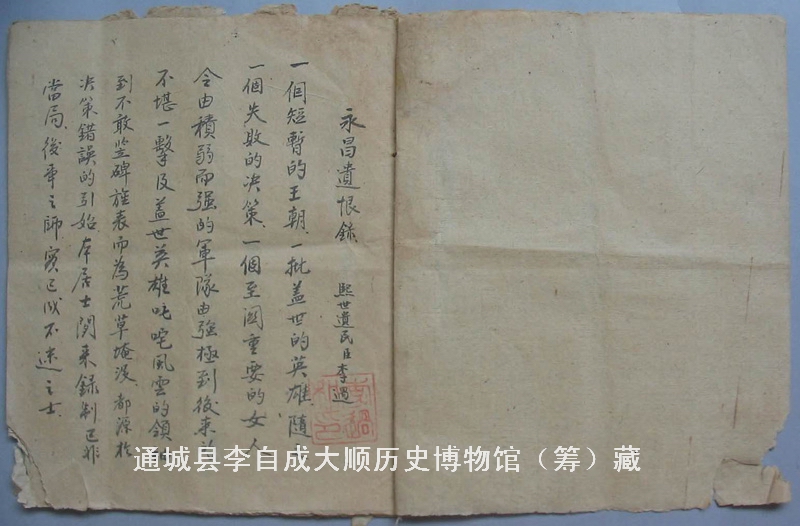 永昌遺恨錄 熙世遺民臣李過
一個短暫的王朝、一批盖世的英雄隨
一個失敗的决策、一個至関重要的女人
令由積弱而强的軍隊由强極到後来的
不堪一擊及盖世英雄叱咤風雲的領
到不敢竖碑旌表而為荒草掩没、都源於
决策錯誤的引始、本居士閑来録制已非
當局、後事之師實已成不迷之士、
通城县李自成大顺历史博物馆（筹）藏